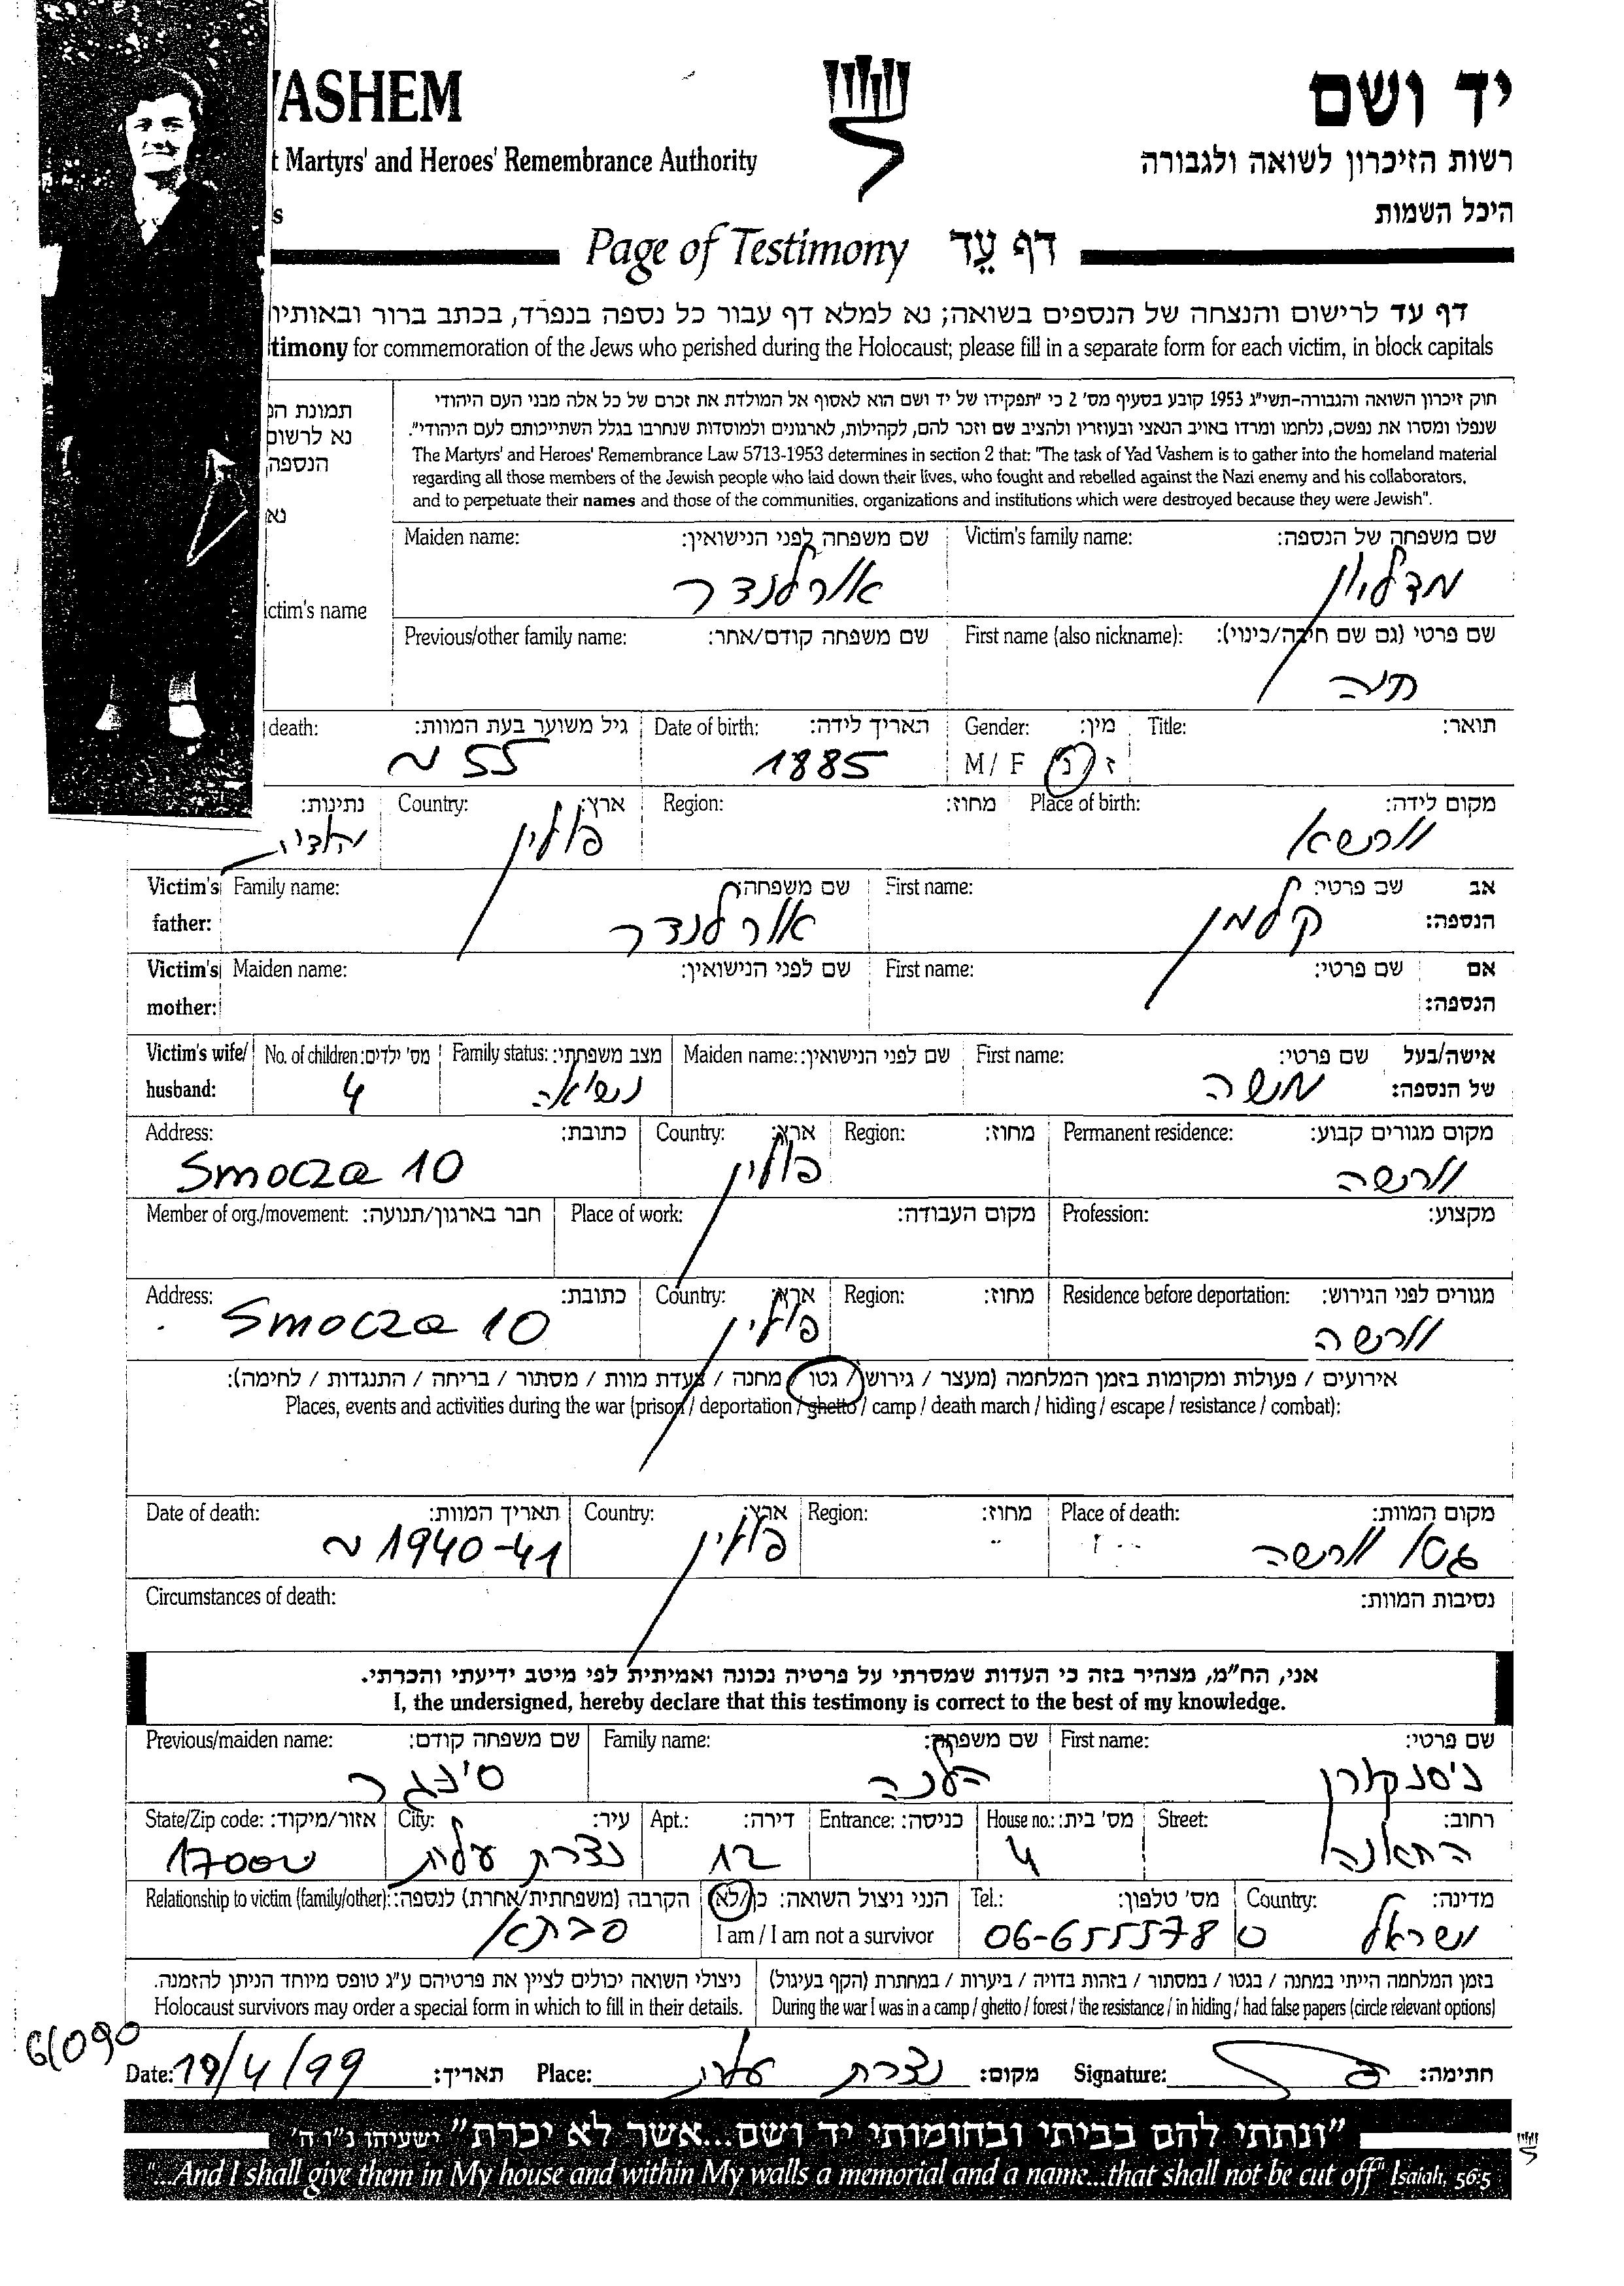 VASHEM
יד ושם
t Martyrs' and Heroes' Remembrance Authority
רשות הזיכרון לשואה ולגבורה
s
היכל השמות
Page of Testimony דף עֵד
דף עד לרישום והנצחה של הנספים בשואה; נא למלא דף עבור כל נספה בנפרד, בכתב ברור ובאותיו
timony for commemoration of the Jews who perished during the Holocaust; please fill in a separate form for each victim, in block capitals
תמונת הנ
נא לרשום
הנספה
נא
ctim's name
חוק זיכרון השואה והגבורה-תשי"ג 1953 קובע בסעיף מס' 2 כי "תפקידו של יד ושם הוא לאסוף אל המולדת את זכרם של כל אלה מבני העם היהודי
שנפלו ומסרו את נפשם, נלחמו ומרדו באויב הנאצי ובעוזריו ולהציב שם וזכר להם, לקהילות, לארגונים ולמוסדות שנחרבו בגלל השתייכותם לעם היהודי".
The Martyrs' and Heroes' Remembrance Law 5713-1953 determines in section 2 that: "The task of Yad Vashem is to gather into the homeland material
regarding all those members of the Jewish people who laid down their lives, who fought and rebelled against the Nazi enemy and his collaborators,
and to perpetuate their names and those of the communities, organizations and institutions which were destroyed because they were Jewish".
Maiden name: שם משפחה לפני הנישואין: Victim's family name: שם משפחה של הנספה:
אורלנדר
Previous/other family name: שם משפחה קודם/אחר: First name (also nickname): שם פרטי (גם שם חיבה/כינוי):
חנה
death: גיל משוער בעת המוות: Date of birth: תאריך לידה: Gender: מין: Title: תואר:
~ 55 1885 M / F ז / נ
נתינות: Country: ארץ: Region: מחוז: Place of birth: מקום לידה:
פולין וורשא
Victim's father: Family name: שם משפחה: First name: שם פרטי: אב הנספה:
אורלנדר קלמן
Victim's mother: Maiden name: שם לפני הנישואין: First name: שם פרטי: אם הנספה:
Victim's wife/ husband: No. of children: מס' ילדים: Family status: מצב משפחתי: Maiden name: שם לפני הנישואין: First name: שם פרטי: אישה/בעל של הנספה:
4 נשואה משה
Address: כתובת: Country: ארץ: Region: מחוז: Permanent residence: מקום מגורים קבוע:
Smocza 10 פולין וורשה
Member of org./movement: חבר בארגון/תנועה: Place of work: מקום העבודה: Profession: מקצוע:
Address: כתובת: Country: ארץ: Region: מחוז: Residence before deportation: מגורים לפני הגירוש:
Smocza 10 פולין וורשה
אירועים / פעולות ומקומות בזמן המלחמה (מעצר / גירוש / גטו / מחנה / צעדת מוות / מסתור / בריחה / התנגדות / לחימה):
Places, events and activities during the war (prison / deportation / ghetto / camp / death march / hiding / escape / resistance / combat):
Date of death: תאריך המוות: Country: ארץ: Region: מחוז: Place of death: מקום המוות:
~ 1940-41 פולין גטו וורשה
Circumstances of death: נסיבות המוות:
אני, הח"מ, מצהיר בזה כי העדות שמסרתי על פרטיה נכונה ואמיתית לפי מיטב ידיעתי והכרתי.
I, the undersigned, hereby declare that this testimony is correct to the best of my knowledge.
Previous/maiden name: שם משפחה קודם: Family name: שם משפחה: First name: שם פרטי:
סינגר הלנה ניסנקורן
State/Zip code: אזור/מיקוד: City: עיר: Apt.: דירה: Entrance: כניסה: House no.: מס' בית: Street: רחוב:
17000 נצרת עלית 12 4 התאנה
Relationship to victim (family/other): הקרבה (משפחתית/אחרת) לנספה: הנני ניצול השואה: כן/לא Tel.: מס' טלפון: Country: מדינה:
סבתא I am / I am not a survivor 06-6555780 ישראל
ניצולי השואה יכולים לציין את פרטיהם ע"ג טופס מיוחד הניתן להזמנה. בזמן המלחמה הייתי במחנה / בגטו / במסתור / בזהות בדויה / ביערות / במחתרת (הקף בעיגול)
Holocaust survivors may order a special form in which to fill in their details. During the war I was in a camp / ghetto / forest / the resistance / in hiding / had false papers (circle relevant options)
Date: 19/4/99 תאריך: Place: נצרת עלית מקום: Signature: חתימה:
"ונתתי להם בביתי ובחומותי יד ושם...אשר לא יכרת" ישעיהו נ"ו ה'
"...And I shall give them in My house and within My walls a memorial and a name...that shall not be cut off" Isaiah, 56:5